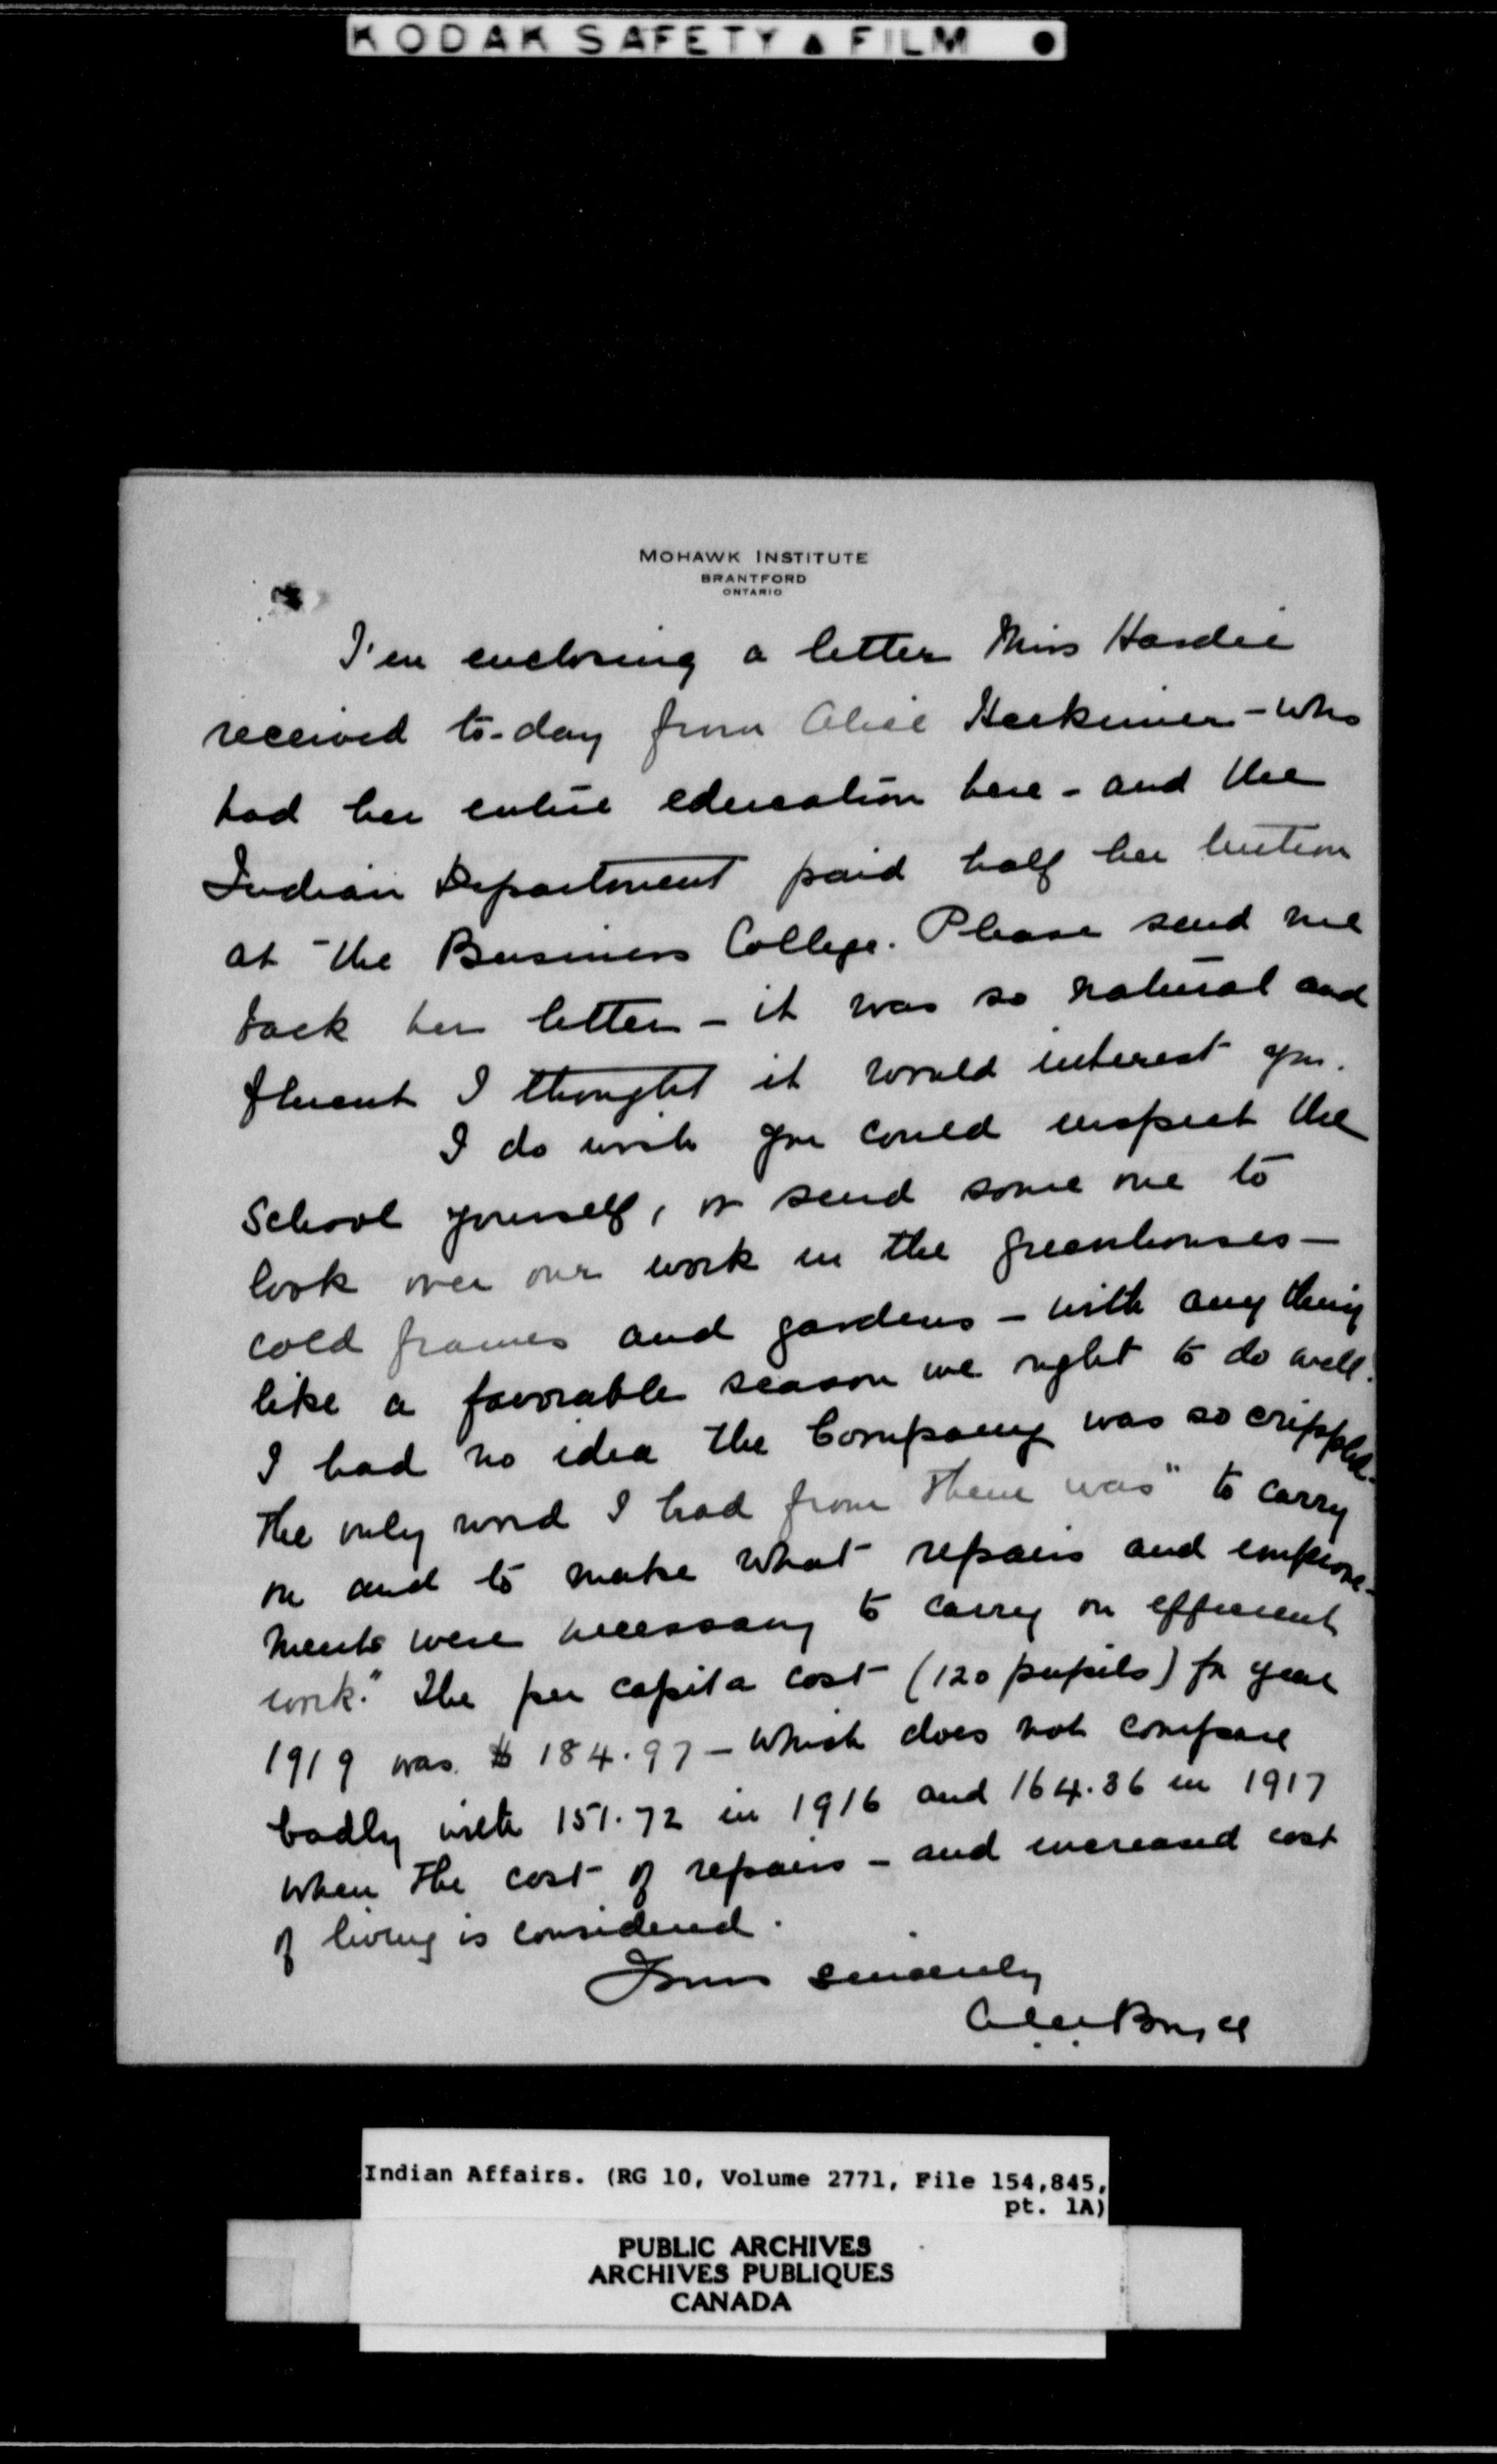 KODAK SAFETY FILM
MOHAWK INSTITUTE
BRANTFORD
ONTARIO
I'm enclosing a letter Miss Hardie
received to-day from Alice Herkimer - who
had her entire education here - and the
Indian Department paid half her tuition
at the Business College. Please send me
back her letter - it was so natural and
fluent I thought it would interest you.
I do wish you could inspect the
School yourself, or send some one to
look over our work in the greenhouses -
cold frames and gardens - with any thing
like a favorable season we ought to do well.
I had no idea the Company was so crippled.
The only word I had from them was "to carry
on and to make what repairs and improve-
ments were necessary to carry on efficient
work." The per capita cost (120 pupils) for year
1919 was $184.97 - which does not compare
badly with 151.72 in 1916 and 164.86 in 1917
when the cost of repairs - and increased cost
of living is considered.
Yours sincerely
Indian Affairs. (RG 10, Volume 2771, File 154,845,
pt. 1A)
PUBLIC ARCHIVES
ARCHIVES PUBLIQUES
CANADA